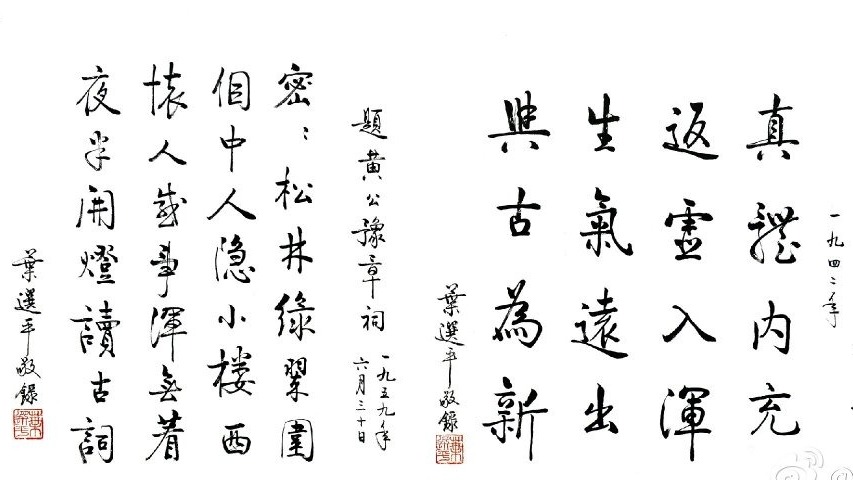 一九四二年
真體内充
返虚入渾
生氣遠出
與古為新
葉選平敬錄
題黄公豫章祠
一九五九年
六月三十日
密〻松林綠翠圍
個中人隐小楼西
懐人感事渾無着
夜半開燈讀古詞
葉選平敬錄